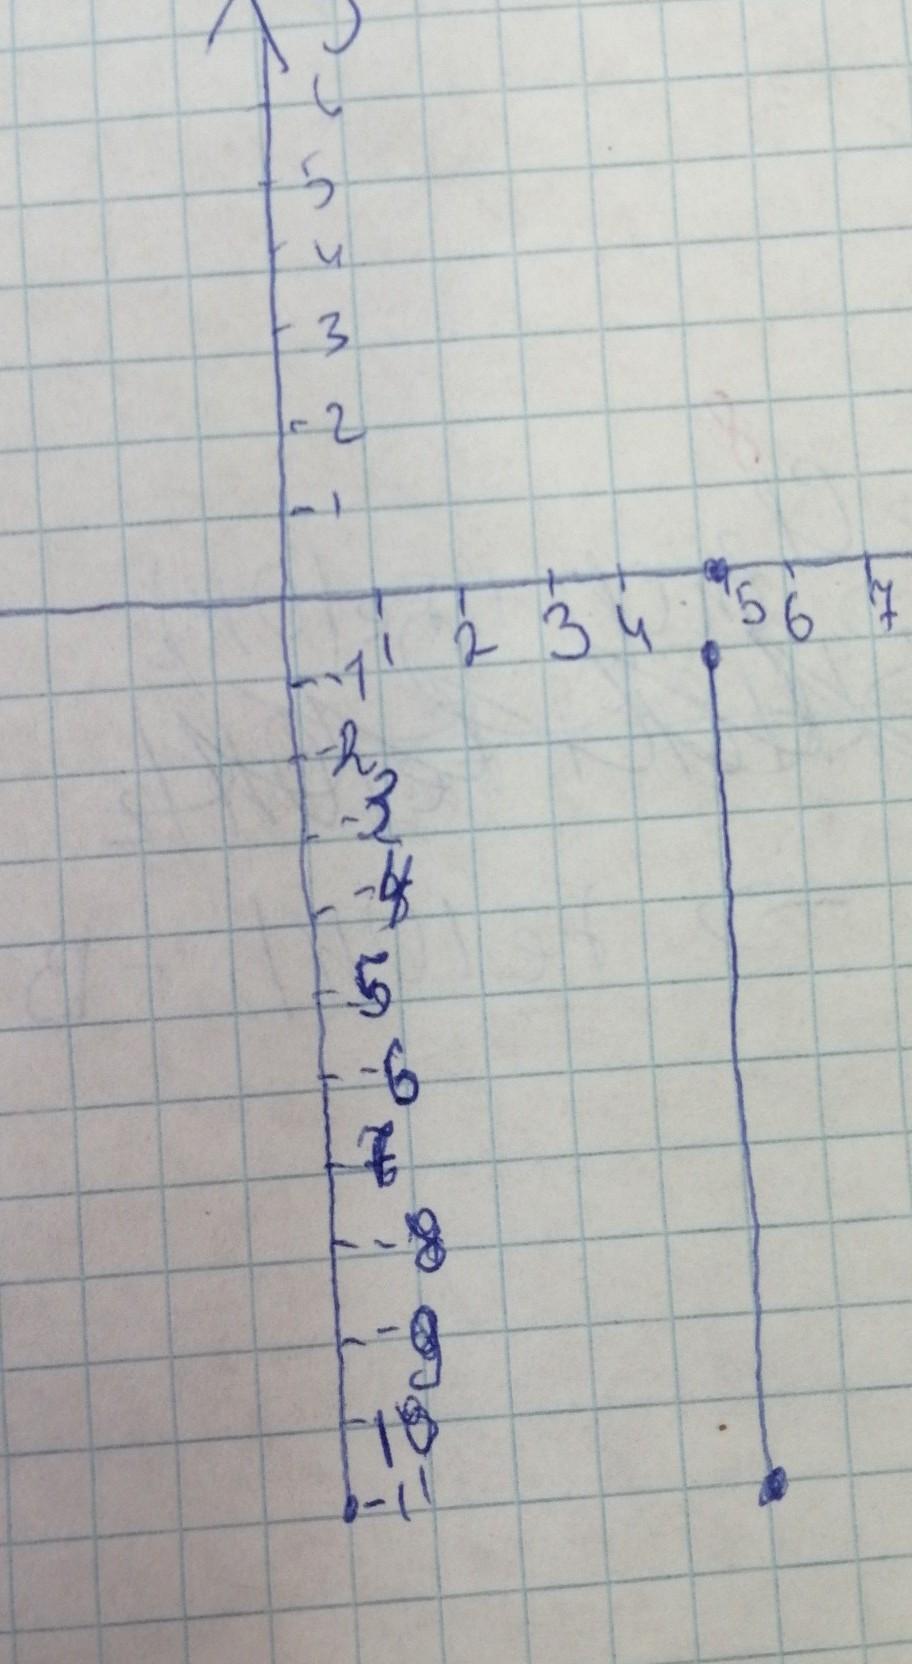 6
5
4
3
2
1
1 2 3 4 5 6 7
-1
-2
-3
-4
5
-6
7
-8
-9
-10
-11